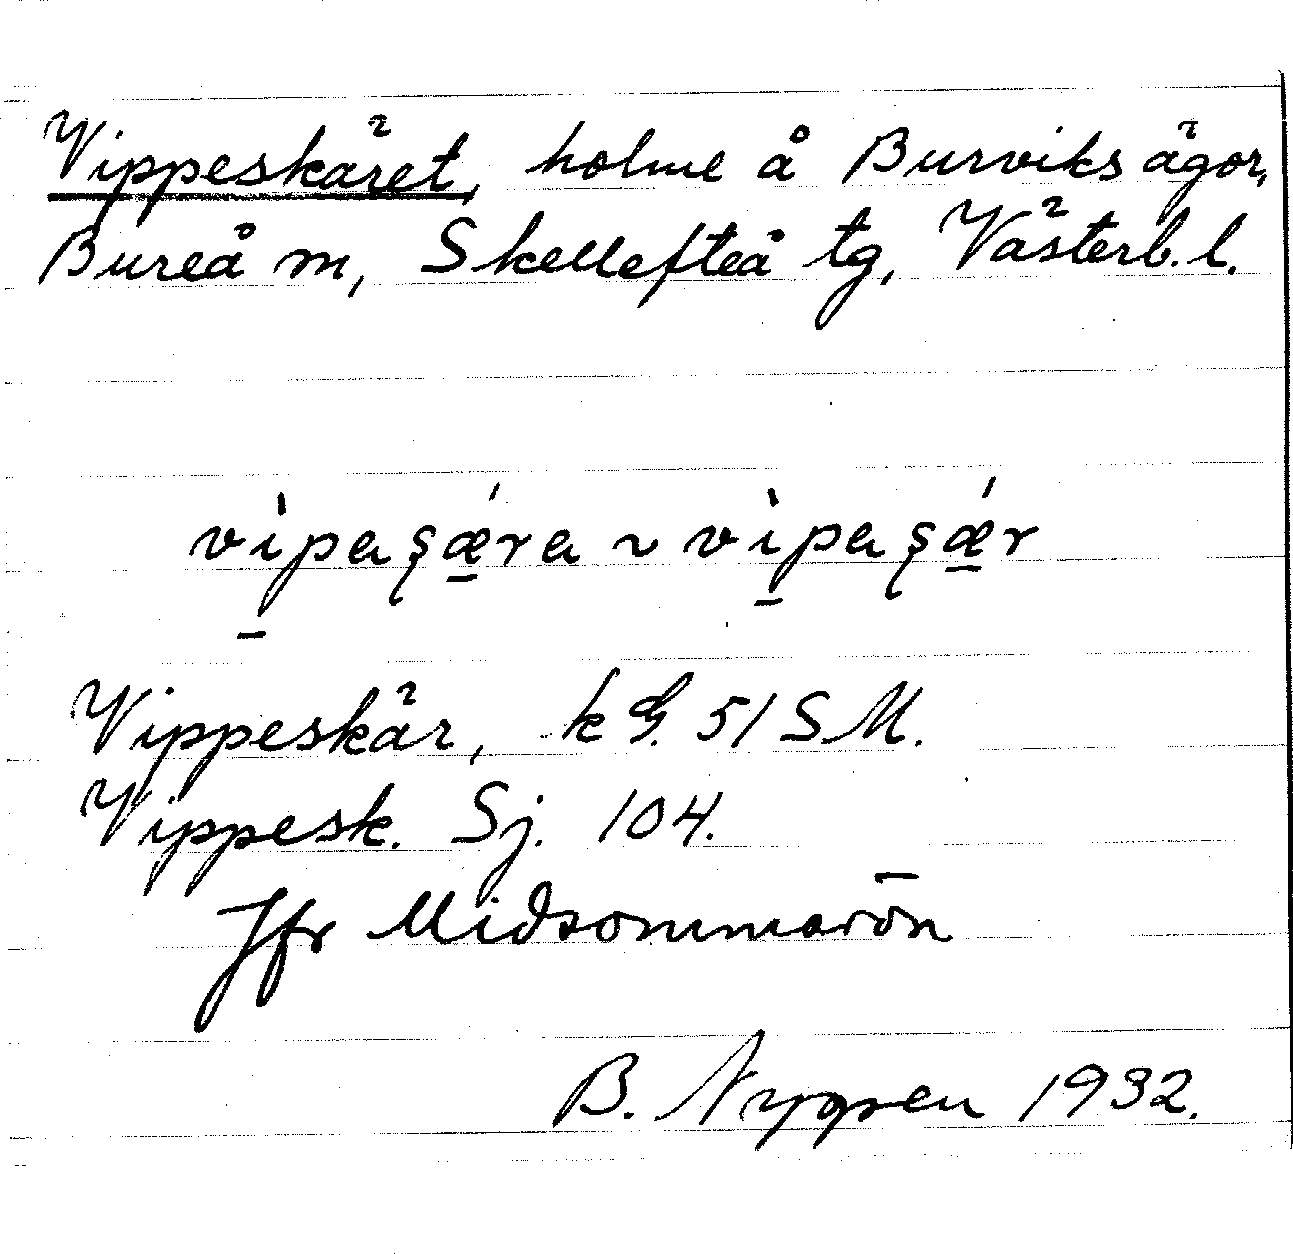 Vippeskäret, holme å Burviks ägor,
Bureå m, Skellefteå tg, Västerb. l.
vì̱paşǽ̱ra ~ vì̱paşǽ̱r
Vippeskär, kG. 51 SM.
Vippesk. Sj. 104.
Jfr Midsommarön
B. Nygren 1932.